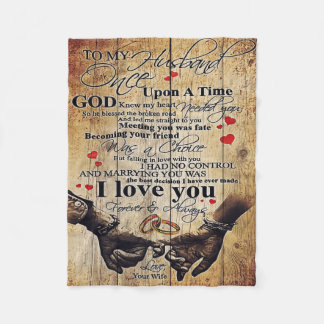 TO MY Husband
Once
Upon A Time
GOD Knew my heart Needed you
So he blessed the broken road
And led me straight to you
Meeting you was fate
Becoming your friend
Was a Choice
But falling in love with you
I HAD NO CONTROL
AND MARRYING YOU WAS
the best decision I have ever made
I love you
Forever & Always
Love,
Your Wife